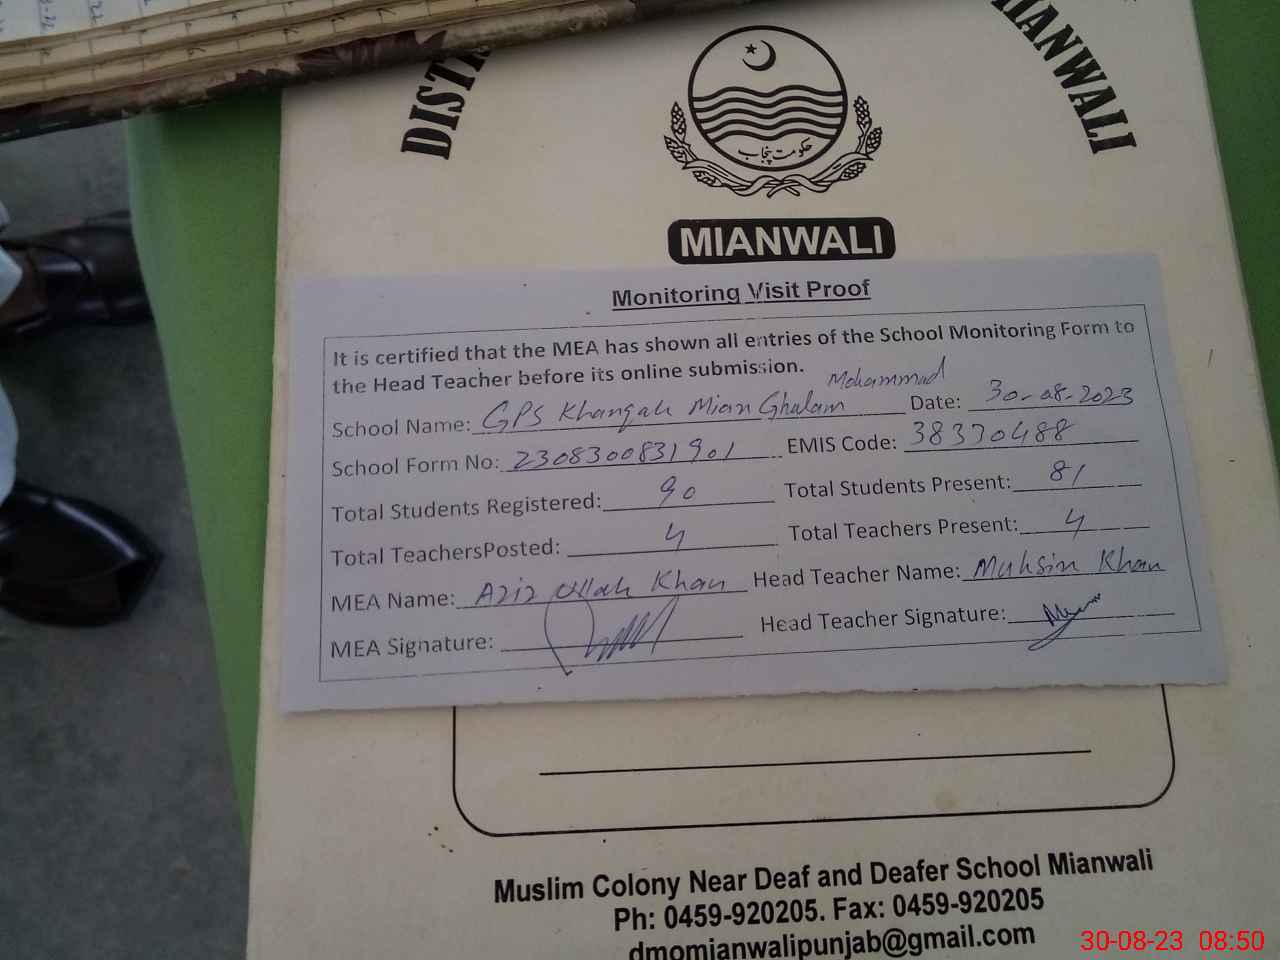 MIANWALI
حکومت پنجاب
MIANWALI
Monitoring Visit Proof
It is certified that the MEA has shown all entries of the School Monitoring Form to
the Head Teacher before its online submission.
School Name: GPS Khanqah Mian Ghulam Mohammad Date: 30-08-2023
School Form No: 2308300831901 EMIS Code: 38370488
Total Students Registered: 90 Total Students Present: 81
Total TeachersPosted: 4 Total Teachers Present: 4
MEA Name: Aziz Ullah Khan Head Teacher Name: Muhsin Khan
MEA Signature: Head Teacher Signature:
Muslim Colony Near Deaf and Deafer School Mianwali
Ph: 0459-920205. Fax: 0459-920205
dmomianwalipunjab@gmail.com
30-08-23 08:50